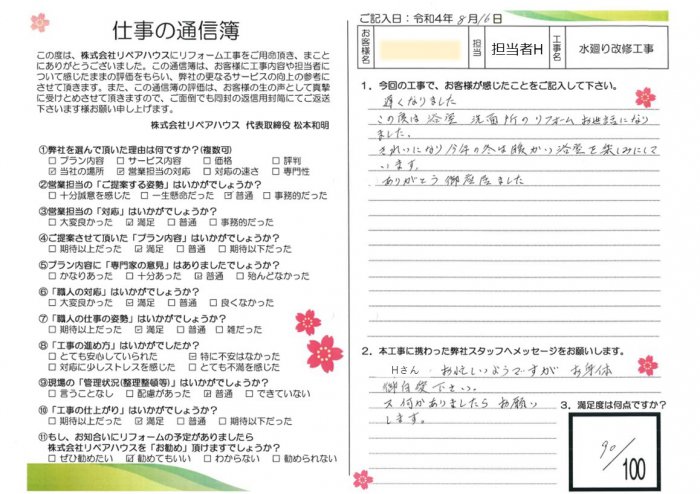 仕事の通信簿
この度は、株式会社リペアハウスにリフォーム工事をご用命頂き、まこと
にありがとうございました。この通信簿は、お客様に工事内容や担当者に
ついて感じたままの評価をもらい、弊社の更なるサービスの向上の参考に
させて頂きます。また、この通信簿の評価は、お客様の生の声として真摯
に受けとめさせて頂きますので、ご面倒でも同封の返信用封筒にてご返送
下さいます様お願い申し上げます。
株式会社リペアハウス 代表取締役 松本和明
①弊社を選んで頂いた理由は何ですか?(複数可)
□プラン内容 □サービス内容 □価格 □評判
☑当社の場所 ☑営業担当の対応 □対応の速さ □専門性
②営業担当の「ご提案する姿勢」はいかがでしょうか?
□十分誠意を感じた □一生懸命だった ☑普通 □事務的だった
③営業担当の「対応」はいかがでしょうか?
□大変良かった ☑満足 □普通 □事務的だった
④ご提案させて頂いた「プラン内容」はいかがでしょうか?
□期待以上だった ☑満足 □普通 □期待以下だった
⑤プラン内容に「専門家の意見」はありましたでしょうか?
□かなりあった □十分あった ☑普通 □殆んどなかった
⑥「職人の対応」はいかがでしょうか?
□大変良かった ☑満足 □普通 □良くなかった
⑦「職人の仕事の姿勢」はいかがでしょうか?
□期待以上だった ☑満足 □普通 □雑だった
⑧「工事の進め方」はいかがでしたか?
□とても安心していられた ☑特に不安はなかった
□対応に少しストレスを感じた □とても不満を感じた
⑨現場の「管理状況(整理整頓等)」はいかがでしょうか?
□言うことなし □配慮があった ☑普通 □できていない
⑩「工事の仕上がり」はいかがでしょうか?
□期待以上だった ☑満足 □普通 □期待以下だった
⑪もし、お知合いにリフォームの予定がありましたら
株式会社リペアハウスを「お勧め」頂けますでしょうか?
□ぜひ勧めたい ☑勧めてもいい □わからない □勧められない
ご記入日:令和4年8月16日
お客様名
担当 担当者H
工事名 水廻り改修工事
1.今回の工事で、お客様が感じたことをご記入して下さい。
遅くなりました
この度は浴室 洗面所のリフォームお世話になり
ました。
きれいになり今年の冬は暖かい浴室を楽しみにして
います。
ありがとう御座居ました
2.本工事に携わった弊社スタッフへメッセージをお願いします。
Hさん お忙しいようですが お身体
御自愛下さい。
又何かありましたらお願い
します。
3.満足度は何点ですか?
90/100